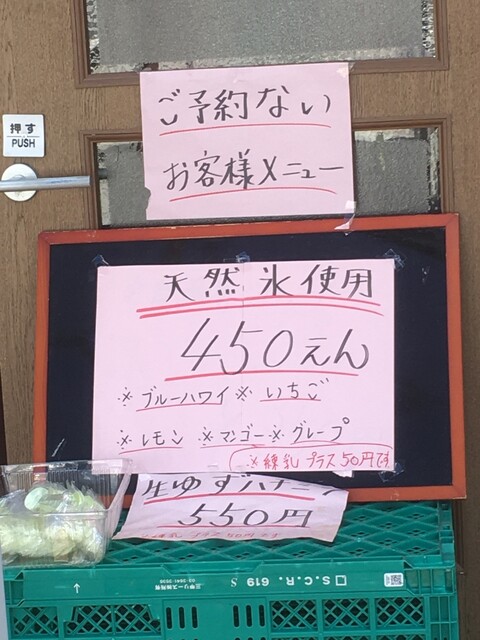 押す
PUSH
ご予約ない
お客様メニュー
天然氷使用
450えん
※ブルーハワイ※いちご
※レモン ※マンゴー※グレープ
※練乳プラス50円です
生ゆずハチミツ
550円
プラス50円です
S.C.R. 619 S